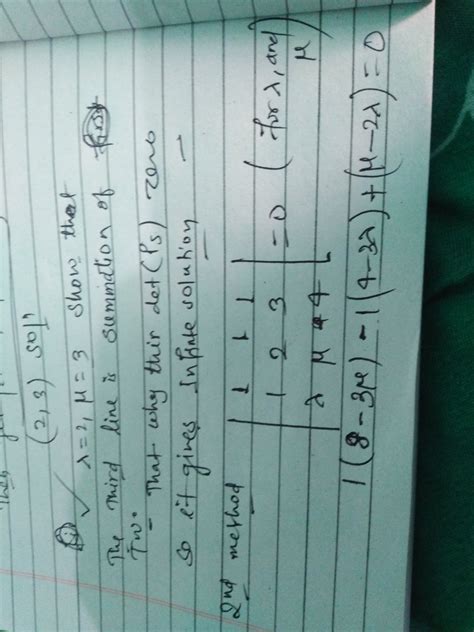 (2,3) solⁿ
(ii) ✓ λ=2, μ=3 show that
The third line is summination of first
Two.
- That why thir det(Ps) zero
so it gives Infinte solution -
2nd method
| 1 1 1 |
| 1 2 3 | =0 (for λ, and μ)
| λ μ 4 |
1(8-3μ) -1(4-3λ) + (μ-2λ) =0